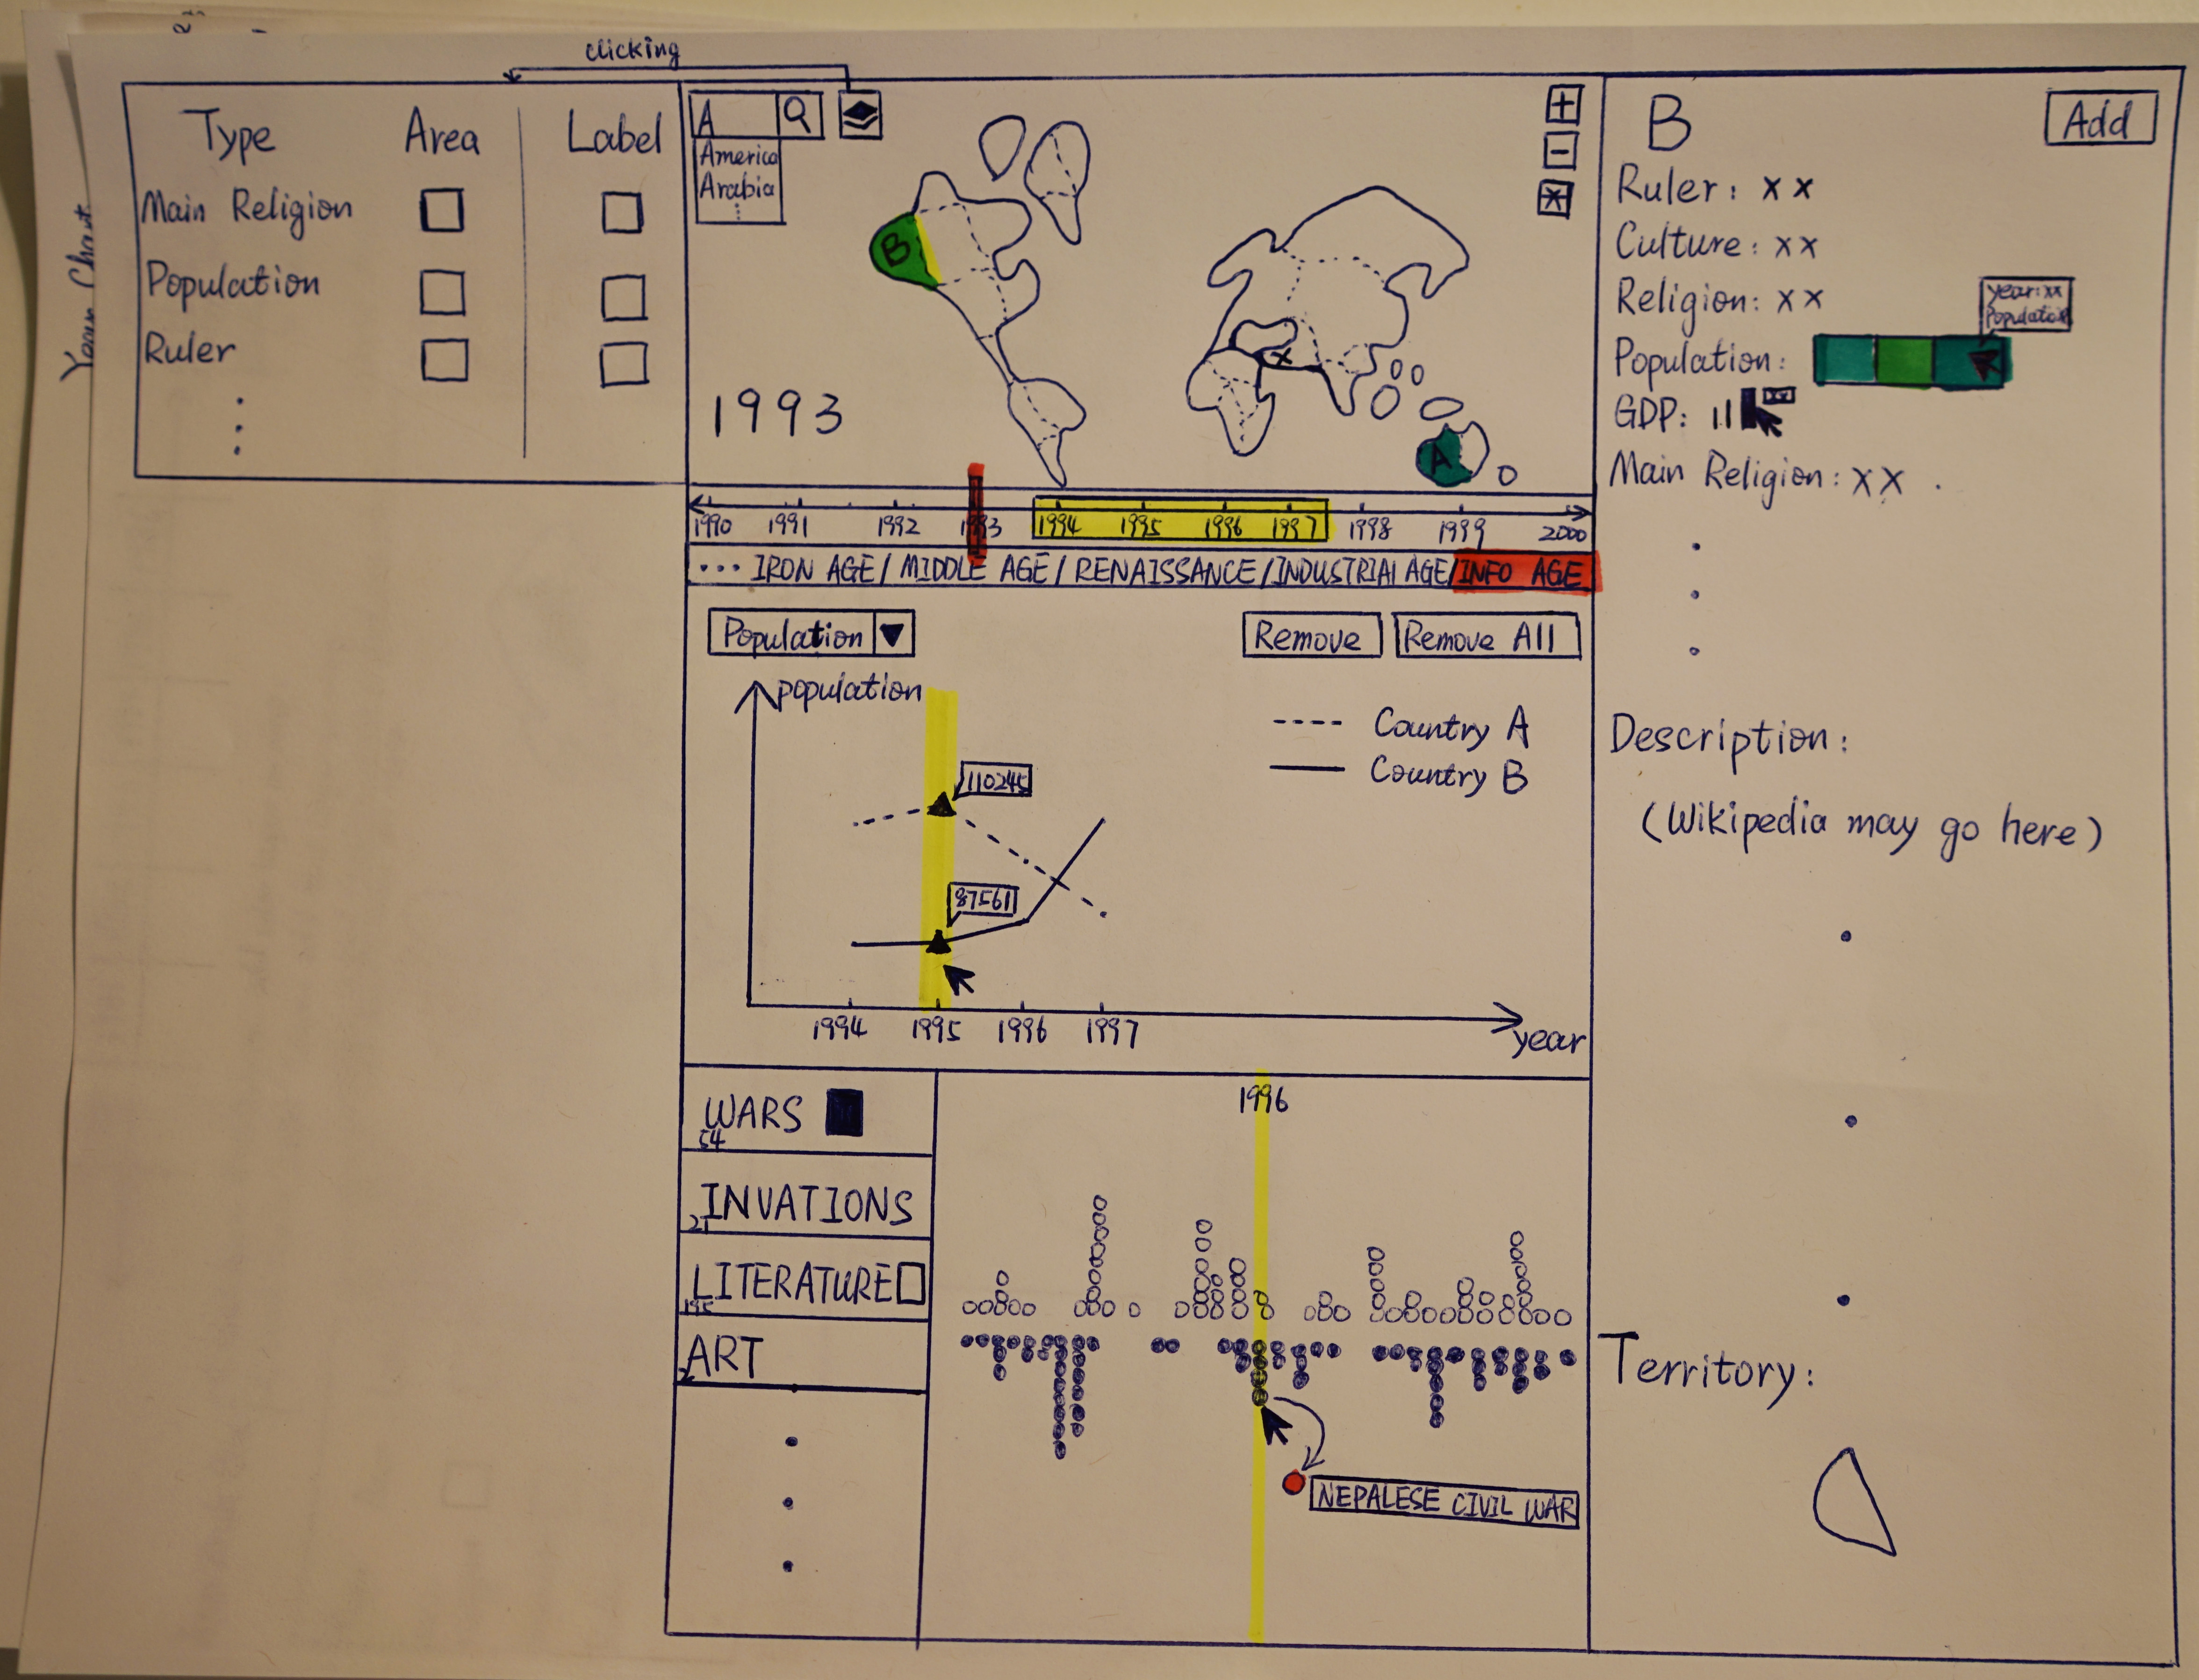 clicking
Type Area Label
Main Religion
Population
Ruler
A
America
Arabia
B
A
x
1993
+
-
*
1990 1991 1992 1993 1994 1995 1996 1997 1998 1999 2000
... IRON AGE / MIDDLE AGE / RENAISSANCE / INDUSTRIAL AGE / INFO AGE
Population
Remove
Remove All
population
Country A
Country B
110245
87561
1994 1995 1996 1997
year
WARS
54
INVATIONS
21
LITERATURE
195
ART
2
1996
NEPALESE CIVIL WAR
B
Add
Ruler: xx
Culture: xx
Religion: xx
year: xx
Population:
GDP:
xx
Main Religion: xx
Description:
(Wikipedia may go here)
Territory: